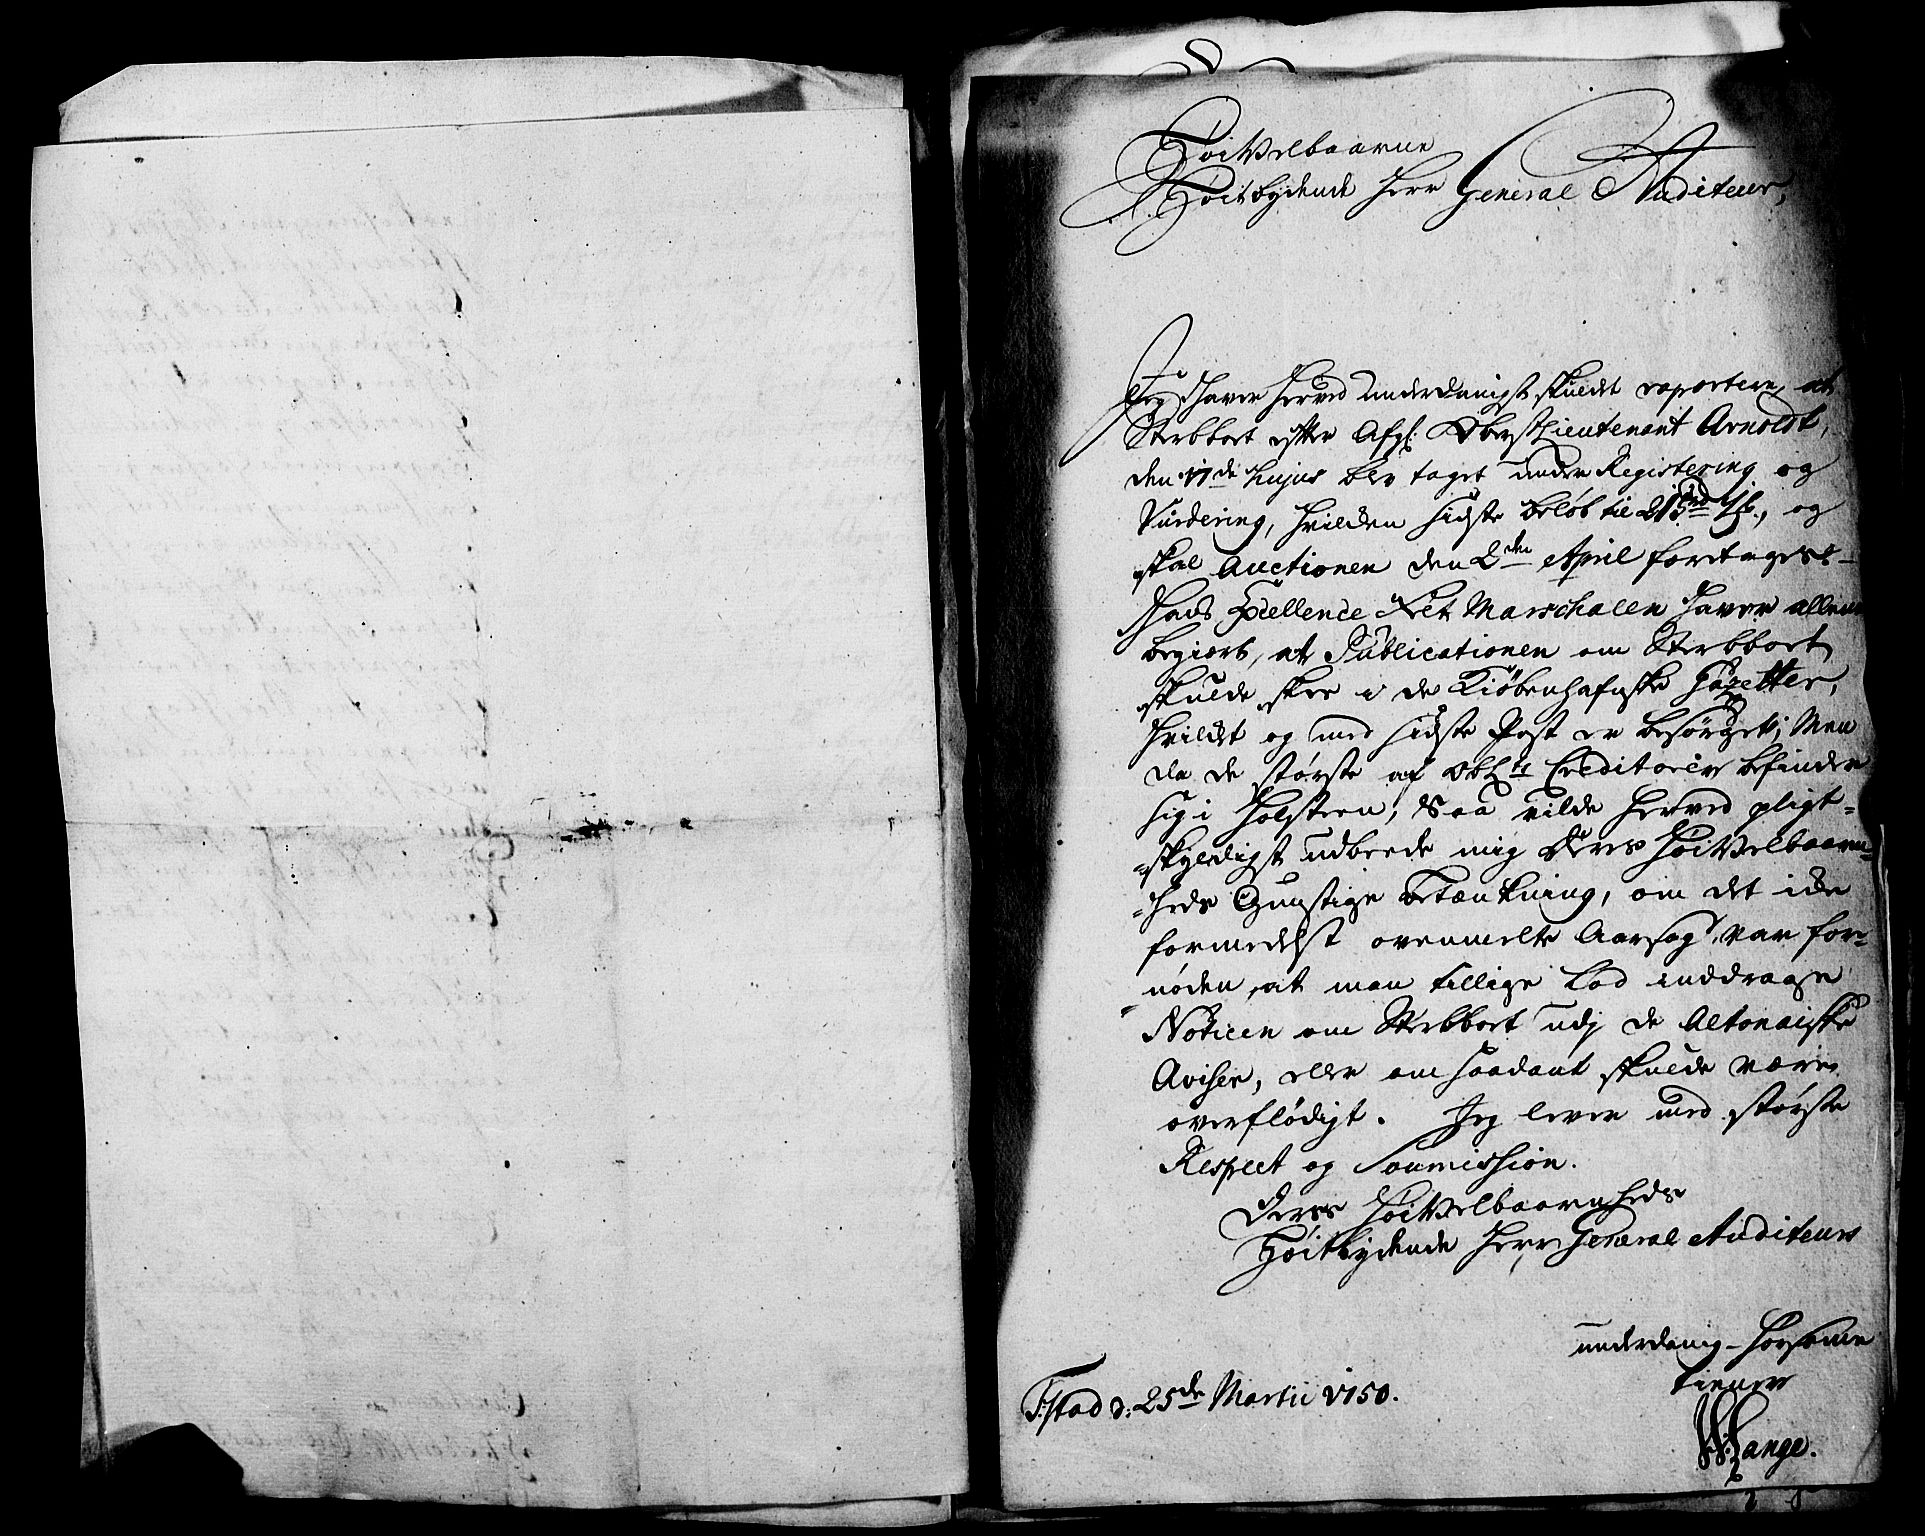 HøiVelbaarne
Høitbydende Herr General Auditeur,
Jeg haver herved underdanigst skuldet raportere, at
Sterbboet efter Afgl: ObrestLieutenant Arnoldt,
den 17de hujus blev taget under Registering og
Vurdering, hvilken sidste beløb til og
skal Auctionen den 2den April foretages.
Hans Excellence Marschalen haver allene
begiært, at Publicationen om Sterbboet
skulde skee i de Kiøbenhafnske Gazetter,
hvildet og med sidste Post er besørget; Men
da de største af Creditorer befinder
sig i Holsteen, Saa vilde herved pligt-
-skyldigst udbeede mig Deres HøiVelbaarn-
-heds Gunstige betænkning, om det icke
formedelst ovenmelte Aarsag var for-
nøden, at man tillige lod inddrage
Noticen om Sterbboet udj de Altonaiske
Aviser, eller om saadant skulde være
overflødigt. Jeg lever med største
Respect og Soumission.
Deres HøiVelbaarnheds
Høitbydende Herr General Auditeurs
underdanig-hørsamme
tiener
WLange.
F:stad d: 25de Martii 1750.